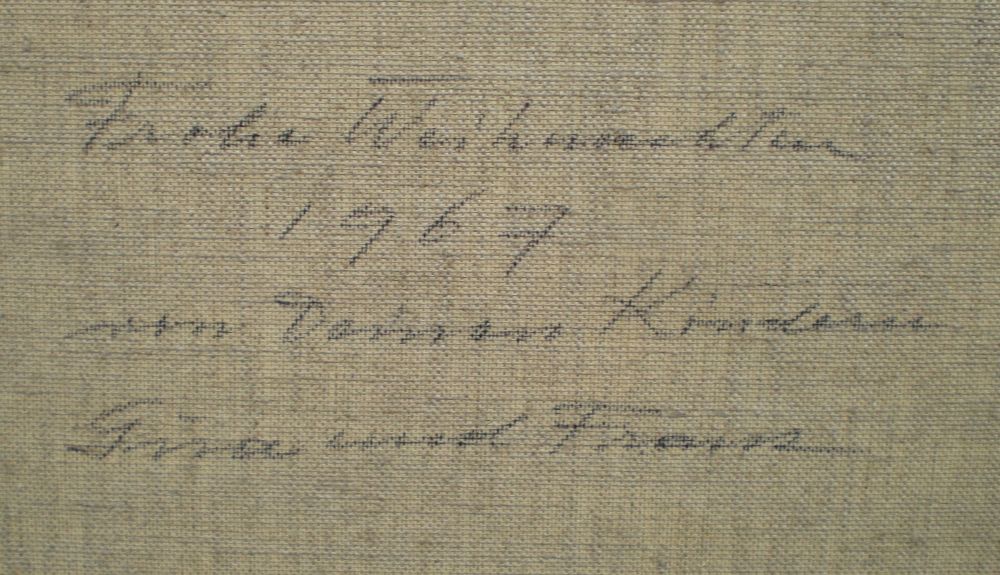 Frohe Weihnachten
1967
von Deinen Kindern
Gina und Frank